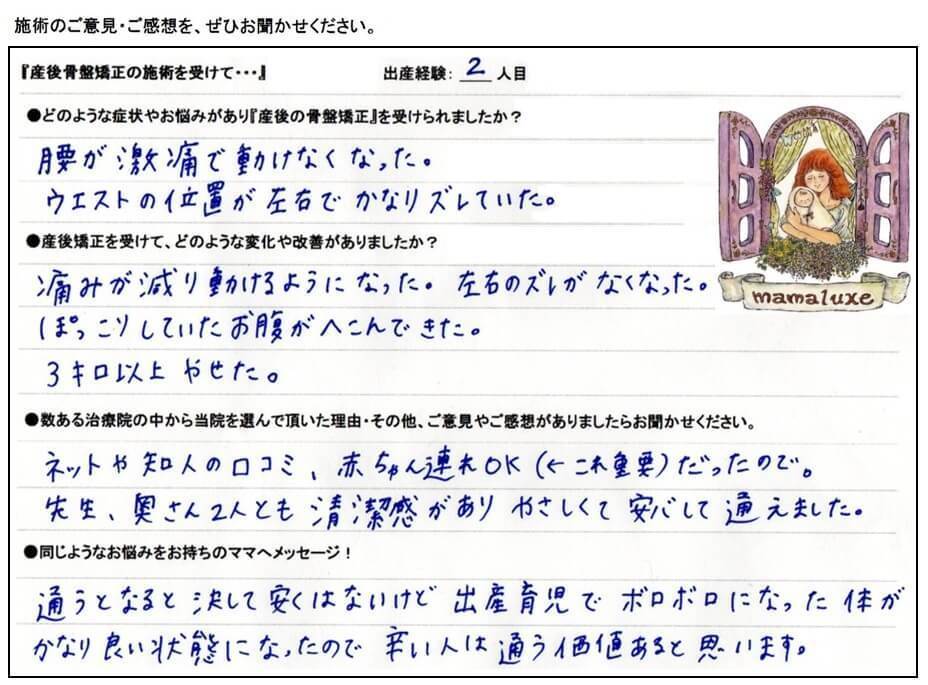 施術のご意見・ご感想を、ぜひお聞かせください。
『産後骨盤矯正の施術を受けて・・・』 出産経験： 2 人目
●どのような症状やお悩みがあり『産後の骨盤矯正』を受けられましたか？
腰が激痛で動けなくなった。
ウエストの位置が左右でかなりズレていた。
●産後矯正を受けて、どのような変化や改善がありましたか？
痛みが減り動けるようになった。左右のズレがなくなった。
ぽっこりしていたお腹がへこんできた。
3キロ以上やせた。
mamaluxe
●数ある治療院の中から当院を選んで頂いた理由・その他、ご意見やご感想がありましたらお聞かせください。
ネットや知人の口コミ、赤ちゃん連れOK（←これ重要）だったので。
先生、奥さん2人とも清潔感がありやさしくて安心して通えました。
●同じようなお悩みをお持ちのママへメッセージ！
通うとなると決して安くはないけど出産育児でボロボロになった体が
かなり良い状態になったので辛い人は通う価値あると思います。